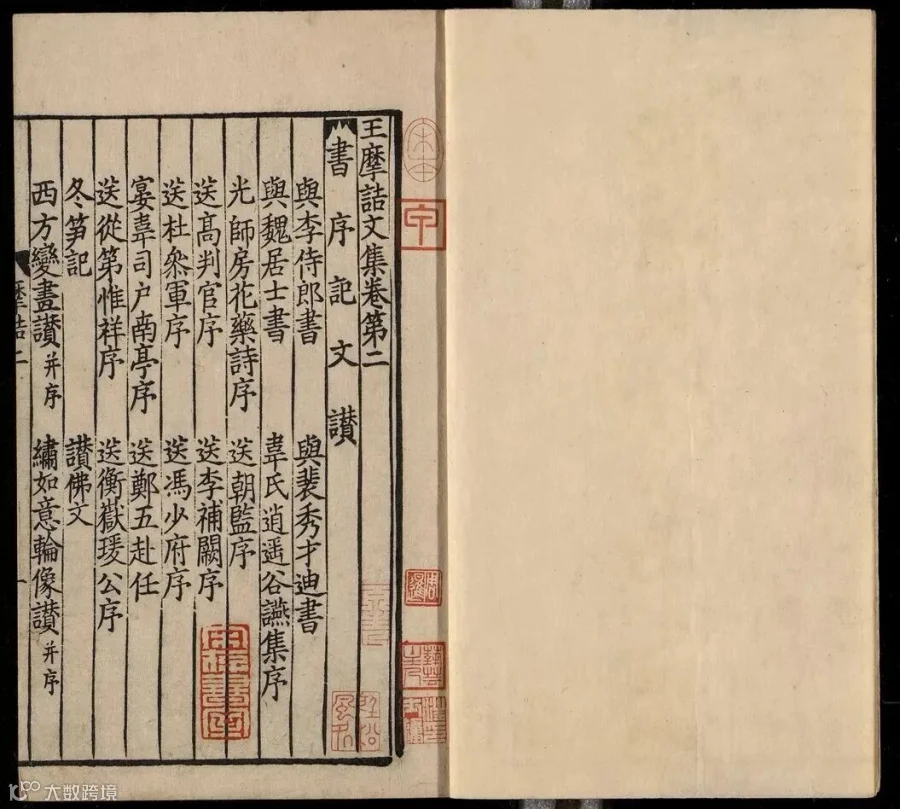 王摩詰文集卷第二
書 序 記 文 讃
與李侍郎書 與裴秀才迪書
與魏居士書 韋氏逍遥谷讌集序
光師房花藥詩序 送朝監序
送高判官序 送李補闕序
送杜叅軍序 送馮少府序
宴韋司户南亭序 送鄭五赴任
送從第惟祥序 送衡嶽瑗公序
冬笋記 讃佛文
西方變畫讃并序 繡如意輪像讃并序
摩詰二
宋本
大数跨境